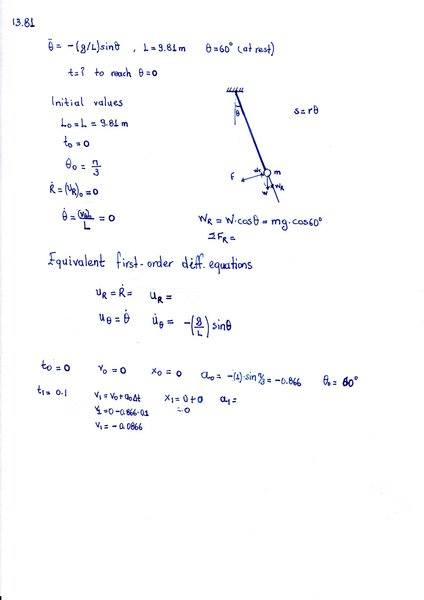 13.81
θ̈ = -(g/L)sinθ , L = 9.81 m θ = 60° (at rest)
t = ? to reach θ = 0
Initial values
L₀ = L = 9.81 m
t₀ = 0
θ₀ = π/3
Ṙ = (υR)₀ = 0
θ̇ = (υθ)₀/L = 0
θ
s = rθ
F
m
W
WR
WR = W·cosθ = mg·cos60°
ΣFR =
Equivalent first-order diff. equations
uR = Ṙ = u̇R =
uθ = θ̇ u̇θ = -(g/L) sinθ
t₀ = 0 v₀ = 0 x₀ = 0 a₀ = -(1)·sin π/3 = -0.866 θ₀ = 60°
t₁ = 0.1 v₁ = v₀ + a₀Δt x₁ = 0 + 0 a₁ =
v₁ = 0 - 0.866·0.1 = 0
v₁ = -0.0866